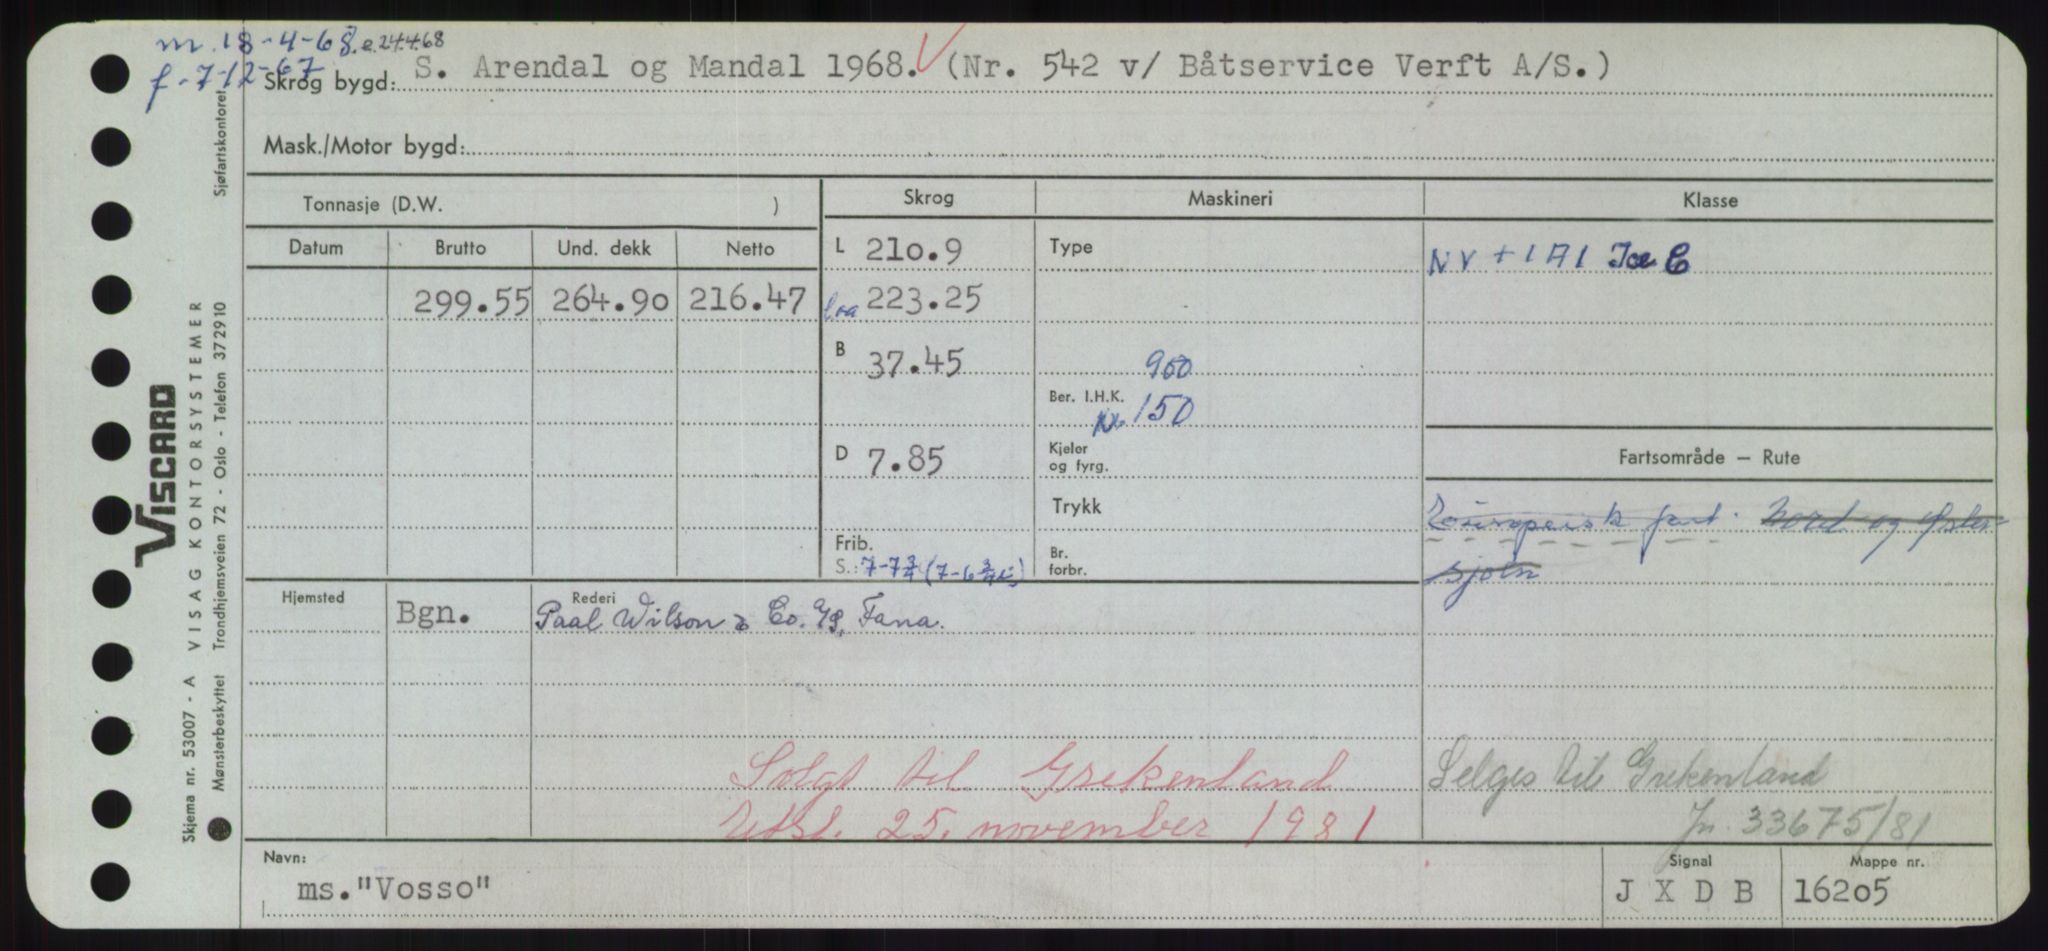 m. 18-4-68. e. 24.4.68
f. - 7-12-67
Skrog bygd: S. Arendal og Mandal 1968. (Nr. 542 v/ Båtservice Verft A/S.)
Mask./Motor bygd:
Tonnasje (D.W. )
Skrog
Maskineri
Klasse
Datum Brutto Und. dekk Netto
299.55 264.90 216.47
L 210.9
loa 223.25
B 37.45
D 7.85
Frib.
S.: 7-7 3/4 (7-6 3/4
Type
900
Ber. I.H.K.
150
Kjeler
og fyrg.
Trykk
Br.
forbr.
NV + 1A1 Ice C
Fartsområde — Rute
Europeisk fart. Nord og Øster-
sjøen
Hjemsted Bgn.
Rederi
Paal Wilson & Co. A/S, Fana.
Solgt til Grekenland
Utsl. 25. november 1981
Selges til Grekenland
Jn. 33675/81
Navn:
ms."Vosso"
Signal
J X D B
Mappe nr.
16205
Sjøfartskontoret
VISCARD
VISAG KONTORSYSTEMER
Trondhjemsveien 72 - Oslo - Telefon 372910
Skjema nr. 53007 - A
Mønsterbeskyttet